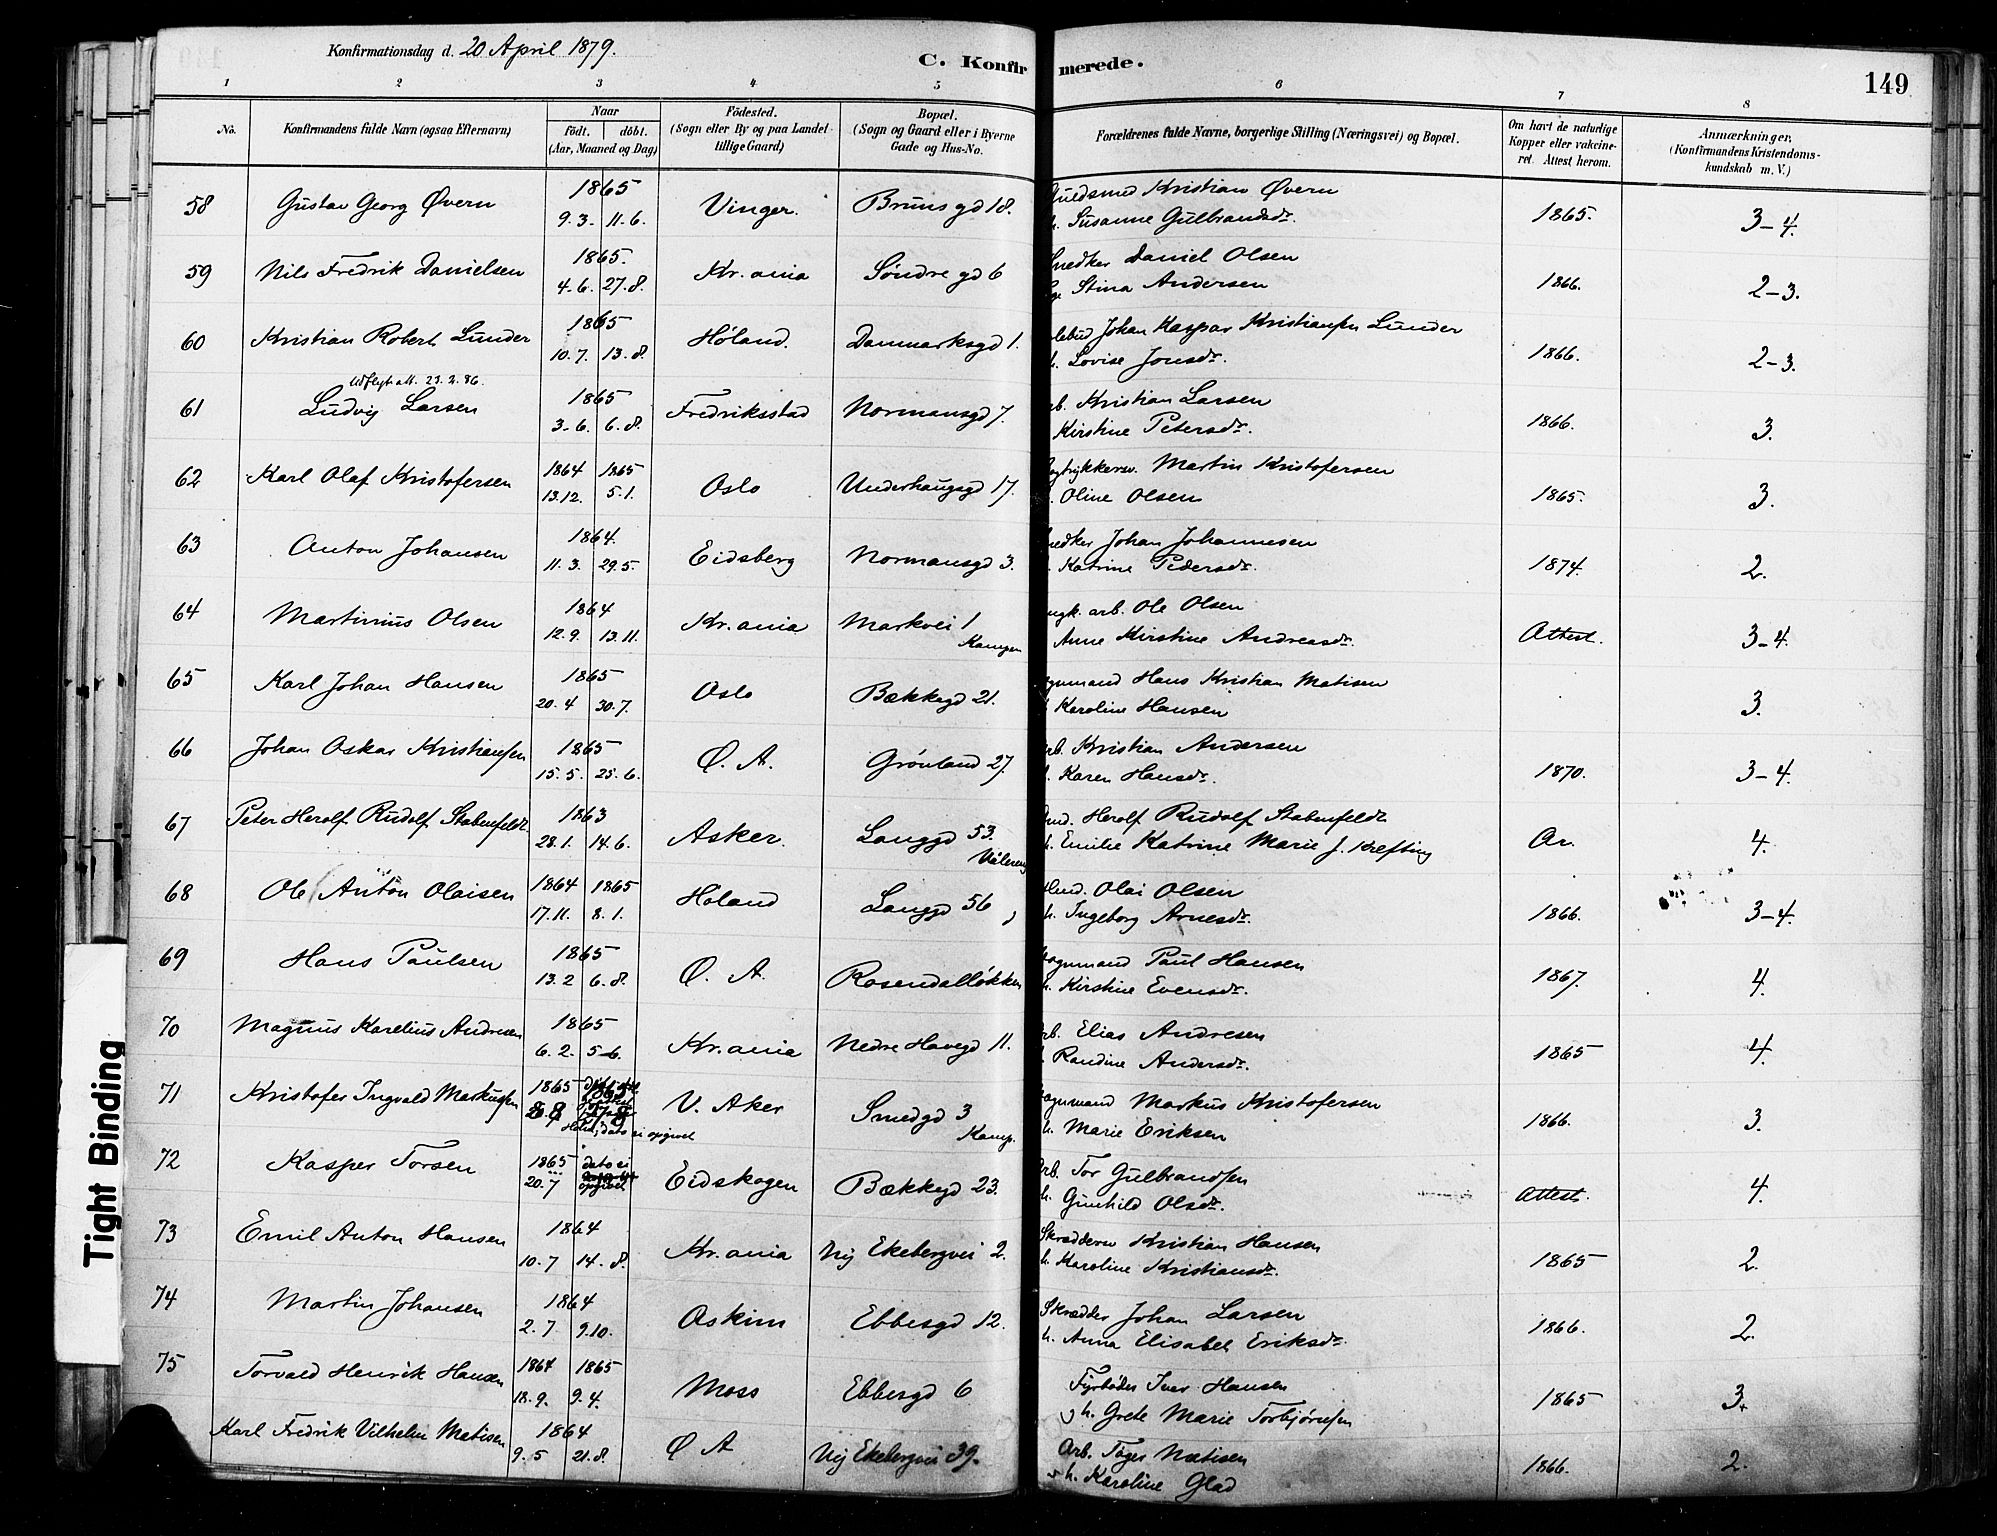 Konfirmationsdag d. 20 April 1879.
C. Konfirmerede.
149
1 2 3 4 5 6 7 8
No. Konfirmandens fulde Navn (ogsaa Efternavn) Naar født. døbt. (Aar, Maaned og Dag) Fødested. (Sogn eller By og paa Landet tillige Gaard) Bopæl. (Sogn og Gaard eller i Byerne Gade og Hus-No. Forældrenes fulde Navne, borgerlige Stilling (Næringsvei) og Bopæl. Om havt de naturlige Kopper eller vakcineret. Attest herom. Anmærkninger, (Konfirmandens Kristendomskundskab m. V.)
58 Gustav Georg Øvern 1865 9.3. 11.6. Vinger. Brunsgd 18. Guldsmed Kristian Øvern
h. Susanne Gulbrandsdr. 1865. 3-4.
59 Nils Fredrik Danielsen 1865. 4.6. 27.8. Kr.ania Søndre gd 6 Snedker Daniel Olsen
Stina Andersen 1866. 2-3.
60 Kristian Robert Lunder 1865 10.7. 13.8. Høland. Danmarksgd 1. Johan Kaspar Kristiansen Lunder
h. Lovise Jonsdr. 1866. 2-3.
Udflytn att. 23.2.86.
61 Ludvig Larsen 1865 3.6. 6.8. Fredriksstad Normansgd 7. Arb. Kristian Larsen
Kirstine Petersdr. 1866. 3.
62 Karl Olaf Kristofersen 1864 13.12. 1865 5.1. Oslo Underhaugsgd 17. Bogtrykkersv. Martin Kristofersen
Oline Olsen 1865. 3.
63 Anton Johansen 1864. 11.3. 29.5. Eidsberg Normansgd 3. Snedker Johan Johannesen
Katrine Pedersdr. 1874. 2.
64 Martinius Olsen 1864 12.9. 13.11. Kr.ania Markvei 1 Kampen arb. Ole Olsen
Anne Kirstine Andreasdr. Attest. 3-4.
65 Karl Johan Hansen 1865 20.4 30.7. Oslo Bækkegd 21. Vognmand Hans Kristian Matisen
Karoline Hansen 3.
66 Johan Oskar Kristiansen 1865 15.5. 25.6. Ø. A. Grønland 27. Arb. Kristian Andersen
Karen Hansdr. 1870. 3-4.
67 Peter Herolf Rudolf Stabenfeldt 1863 28.1. 14.6. Asker. Langgd 53. Vålereng Herolf Rudolf Stabenfeldt
h. Emilie Katrine Marie f. Krefting Ar. 4.
68 Ole Anton Olaisen 1864 17.11. 1865 8.1. Høland Langgd 56 Olai Olsen
h. Ingeborg Arnesdr. 1866. 3-4.
69 Hans Paulsen 1865 13.2 6.8. Ø. A. Rosendalløkken Vognmand Paul Hansen
h. Kirstine Evensdr. 1867. 4.
70 Magnus Karelius Andresen 1865 6.2. 5.6. Kr.ania Nedre Havegd 11. Arb. Elias Andresen
Randine Andersdr. 1865 4.
71 Kristofer Ingvald Markussen 1865 8.8 dato ei opgivet V. Aker Smedgd 3 Kamp. Vognmand Markus Kristofersen
h. Marie Eriksen 1866. 3.
72 Kasper Torsen 1865 20.7 dato ei opgivet Eidskogen Bækkegd 23. Arb. Tor Gulbrandsen
h. Gunhild Olsdr. Attest. 4.
73 Emil Anton Hansen 1864 10.7 14.8. Kr.ania Ny Ekebergvei 2. Skræddersv Kristian Hansen
h. Karoline Kristiansdr. 1865 2.
74 Martin Johansen 1864 2.7 9.10. Askim Ebbesgd 12. Skrædder Johan Larsen
h. Anna Elisabet Eriksdr. 1866. 2.
75 Torvald Henrik Hansen 1864 18.9. 1865 9.4. Moss Ebbesgd 6 Fyrbøder Iver Hansen
h. Grete Marie Torbjørnsen 1865 3+
Karl Fredrik Vilhelm Matisen 1864 9.5 21.8. Ø A Ny Ekebergvei 39. Arb. Tøger Matisen
h. Karoline Glad 1866. 2.
Tight Binding